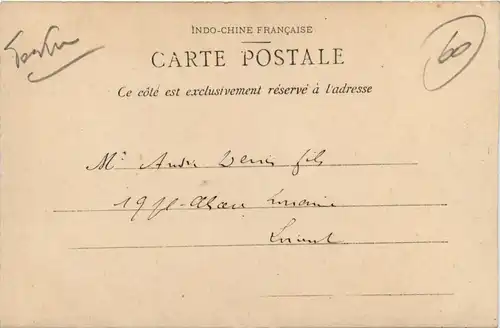 INDO-CHINE FRANÇAISE
CARTE POSTALE
60
Ce côté est exclusivement réservé à l'adresse
Mr André fils
19 Pl. Alsace Lorraine
Lorient